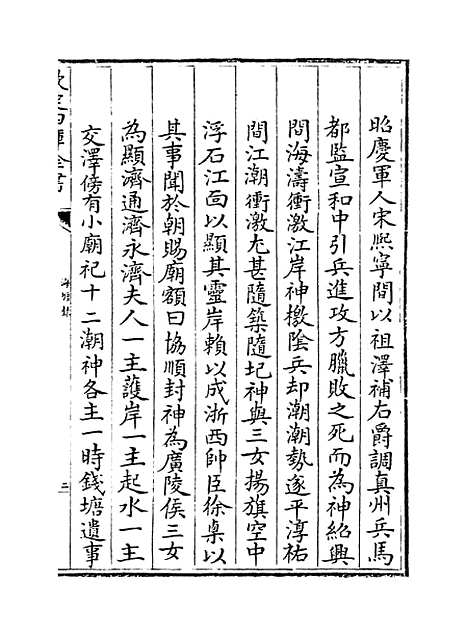 昭慶軍人宋熈寧間以祖澤補右爵調真州兵馬
都監宣和中引兵進攻方臘敗之死而為神紹興
間海濤衝激江岸神檄陰兵却潮潮勢遂平淳祐
間江潮衝激尤甚隨築隨圮神與三女揚旗空中
浮石江面以顯其靈岸賴以成浙西帥臣徐㮚以
其事聞於朝賜廟額曰協順封神為廣陵侯三女
為顯濟通濟永濟夫人一主護岸一主起水一主
交澤傍有小廟祀十二潮神各主一時錢塘遺事
欽定四庫全書
海塘録
三